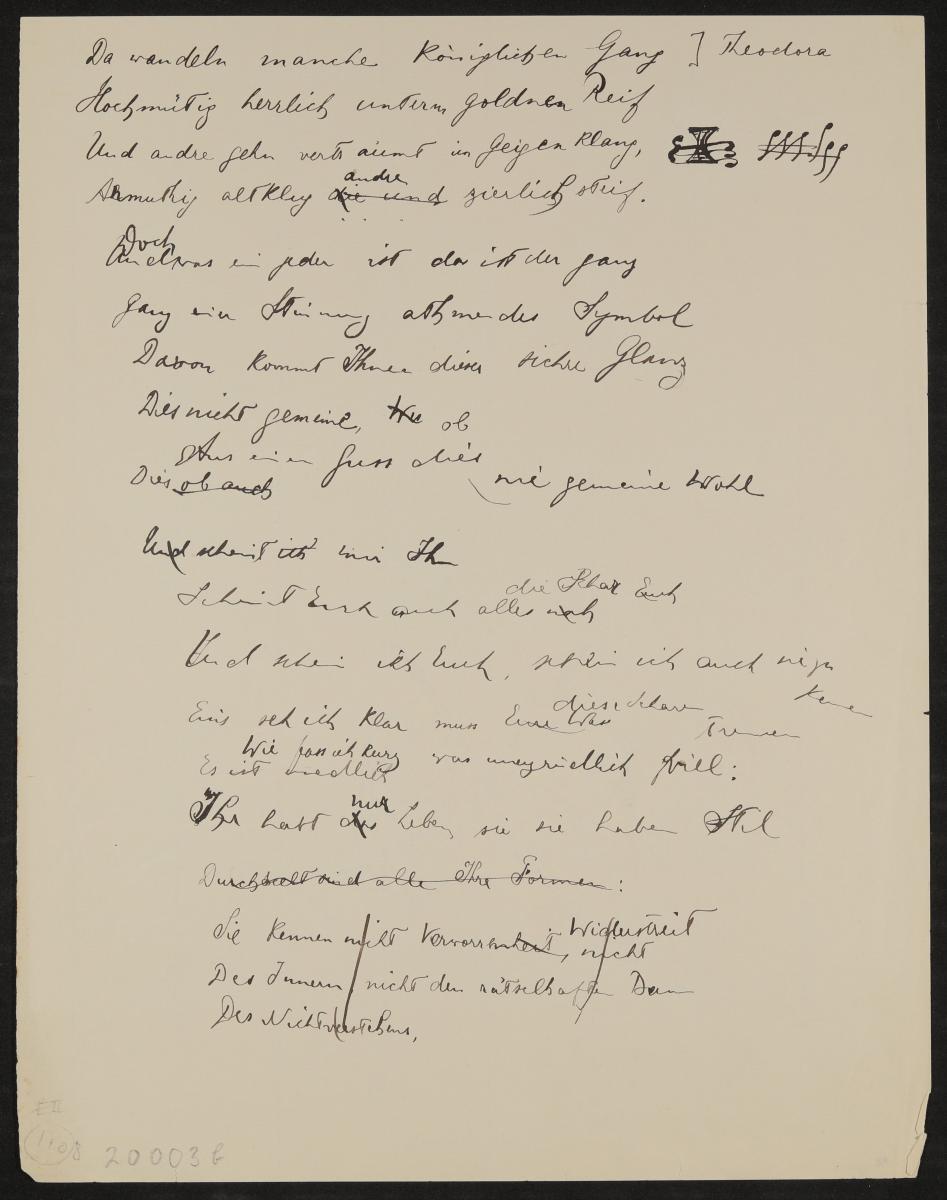 Da wandeln manche königlichen Gang ] Theodora
Hochmütig herrlich unterm goldnen Reif
Und andre gehn verträumt im Geigenklang,
andre
Anmuthig altklug die und zierlich steif.
Doch
Und was ein jeder ist das ist er ganz
Ganz ein Stimmung athmendes Symbol
Davon kommt Ihnen dieser sichre Glanz
Dies nicht gemeine, ob
Aus einem Guss dies
Dies ob auch nie gemeine Wohl
Und scheint ich mir Ihn
die Schar Euch
Scheint Euch auch alles nach
Und schein ich Euch, schein ich auch
kennen
diese Scharen
Eins seh ich klar muss Eure Was Trennen
Wie fass ich kurz
Es ist was unergründlich viel:
nur
Ihr habt das Leben, sie sie haben Stil
Durch und alle Ihre Formen:
Widerstreit
Sie kennen nicht Verworrenheit, nicht
Des Innern, nicht den rätselhaften Dam
Des Nichtverstehens,
E II
20003 b